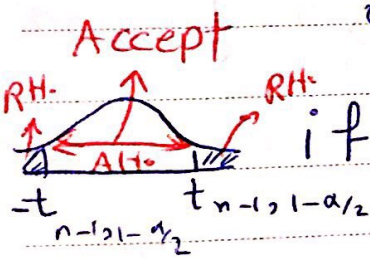 Accept
RH. RH.
AH. if
-t n-1,1-α/2 t n-1,1-α/2